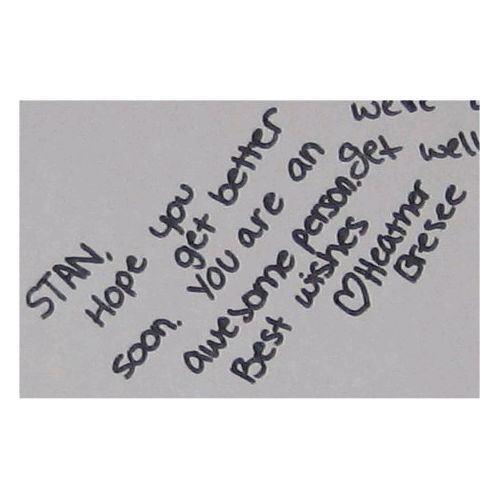 STAN,
Hope you
get better
soon. You are an
awesome person. get well
Best wishes
♡Heather
Bresee
we're